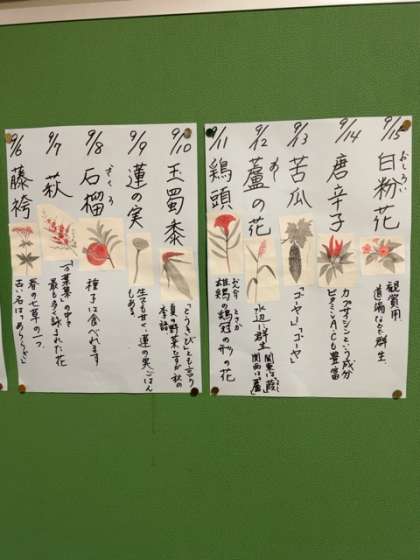 9/6
藤袴
春の七草の一つ、
古い名は「あららぎ」
9/7
萩
「万葉集」の中で
最も多く詠まれた花
9/8
ざくろ
石榴
種子は食べれます
9/9
蓮の実
生でも甘く、蓮の実ごはん
もある
9/10
玉蜀黍
「とうきび」とも言う
夏の野菜ですが秋の
季語
9/11
鶏頭
とさか
雄鶏の鶏冠の形の花
9/12
蘆の花
水辺に群生
関東は
関西は「蘆」
9/13
苦瓜
「ゴーヤー」「ゴーヤ」
9/14
唐辛子
カプサイシンという成分
ビタミンA.Cも豊富
9/15
おしろい
白粉花
観賞用
道端などに群生